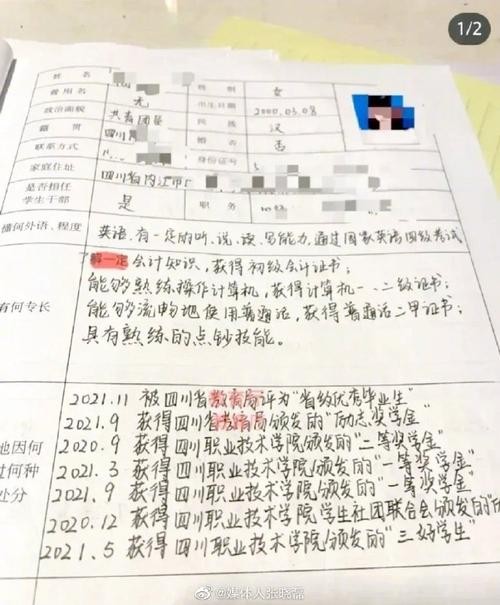 1/2
姓名 性别 女
曾用名 无 出生日期 2000.03.08
政治面貌 共青团员 民族 汉
籍贯 四川 婚否 否
联系方式 身份证号
家庭住址 四川省内江市
是否担任学生干部 是 职务
懂何外语、程度 英语,有一定的听、说、读、写能力,通过国家英语四级考试
有何专长 了解一定会计知识,获得初级会计证书;
能够熟练操作计算机,获得计算机一、二级证书;
能够流畅地使用普通话,获得普通话二甲证书;
具有熟练的点钞技能。
地因何
何种
处分
2021.11 被四川省教育局评为“省级优秀毕业生”
2021.9 获得四川省教育局颁发的“励志奖学金”
2020.9 获得四川职业技术学院颁发的“二等奖学金”
2021.3 获得四川职业技术学院颁发的“一等奖学金”
2021.9 获得四川职业技术学院颁发的“一等奖学金”
2020.12 获得四川职业技术学院学生社团联合会颁发的“
2021.5 获得四川职业技术学院颁发的“三好学生”
@媒体人张晓磊